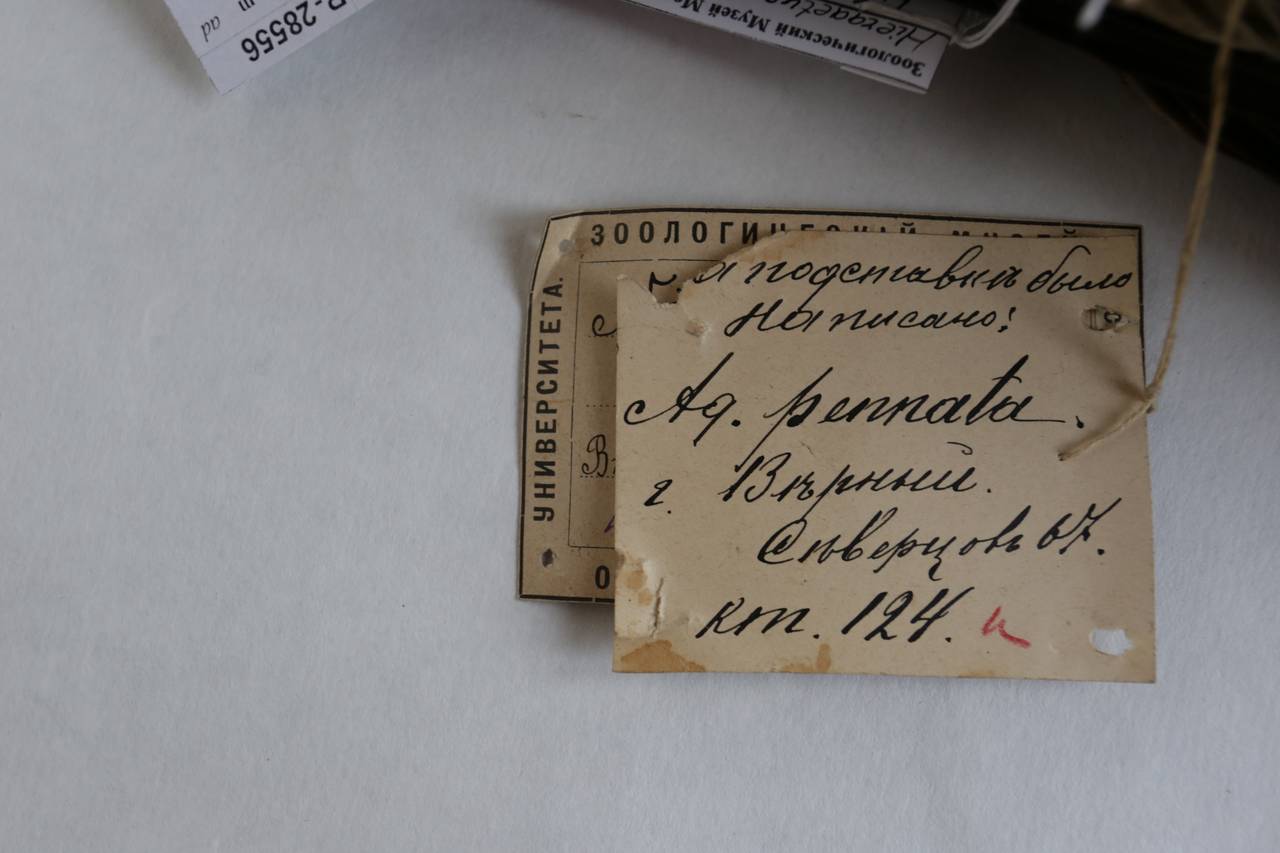 R-28556
ad
Зоологический Музей М
Hieraaetus
ЗООЛОГИЧЕСКІЙ МУЗЕЙ
УНИВЕРСИТЕТА.
подставкѣ было
написано:
Aq. pennata.
г. Вѣрный.
Сѣверцовъ 67.
кт. 124. и